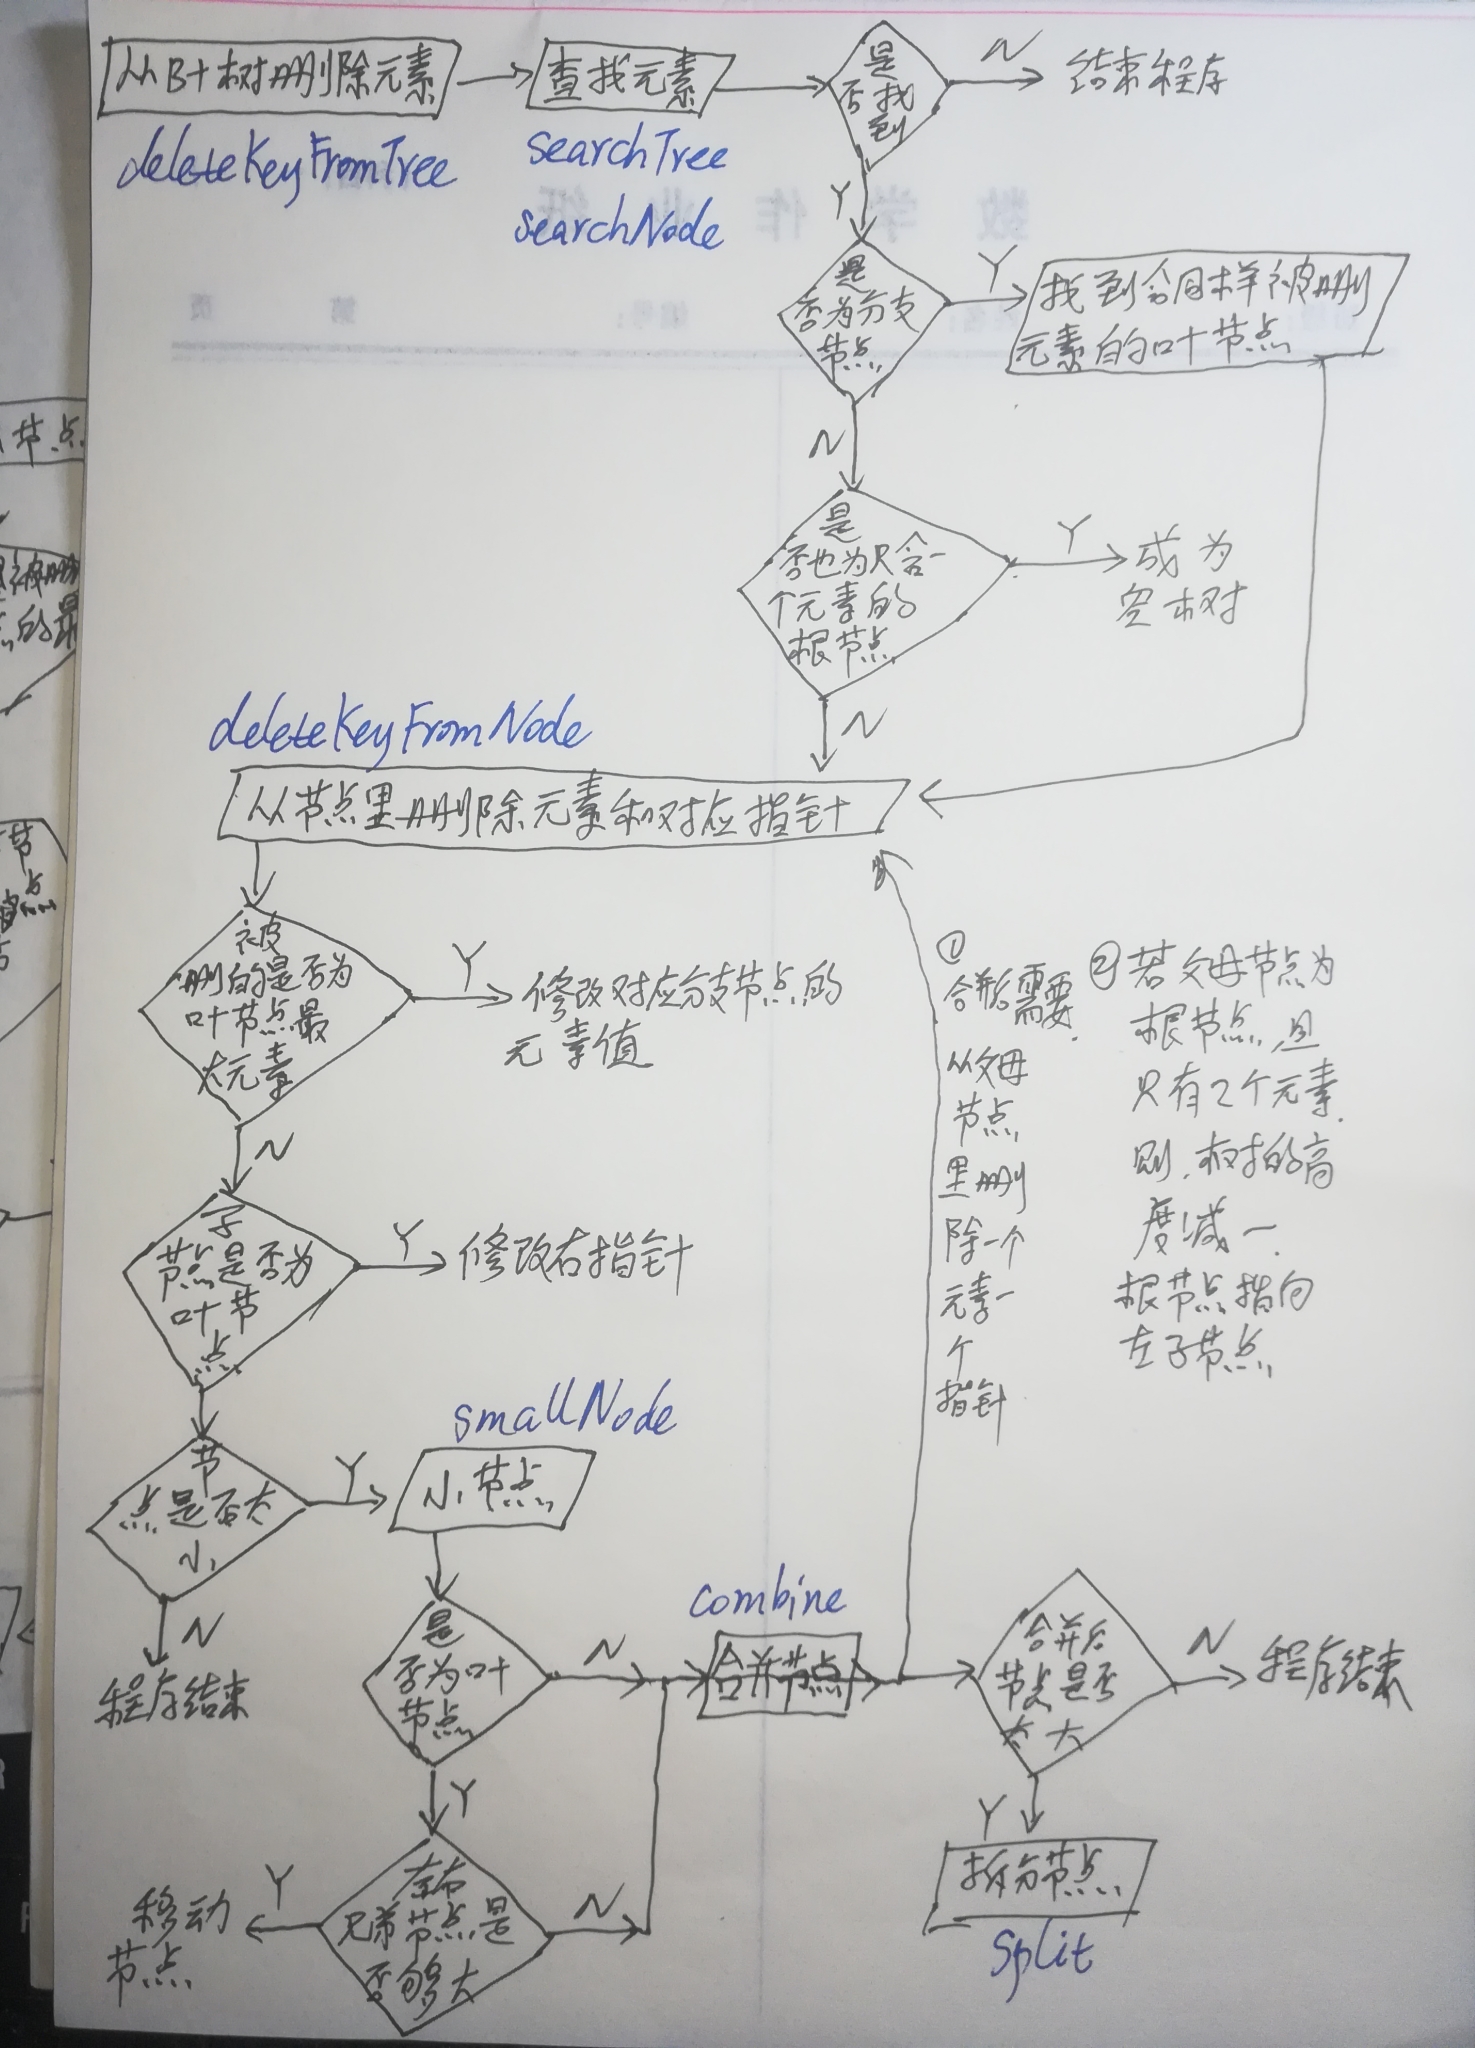 从B+树删除元素
deleteKeyFromTree
查找元素
searchTree
searchNode
是
否找
到
N
结束程序
Y
是
否为分支
节点
Y
找到含同样被删
元素的叶节点
N
是
否也为只含一
个元素的
根节点
Y
成为
空树
N
deleteKeyFromNode
从节点里删除元素和对应指针
被
删的是否为
叶节点最
大元素
Y
修改对应分支节点的
元素值
N
子
节点是否为
叶节
点
Y
修改右指针
节
点是否太
小
Y
smallNode
小节点
N
程序结束
是
否为叶
节点
N
combine
合并节点
Y
左右
兄弟节点是
否够大
Y
移动
节点
N
①
合并后需要
从父母
节点
里删
除一个
元素一
个
指针
②若父母节点为
根节点且
只有2个元素
则,树的高
度减一
根节点指向
左子节点
合并后
节点是否
太大
N
程序结束
Y
拆分节点
split
节点
被删
的最
节
点
数学作业纸
编号:
第
页